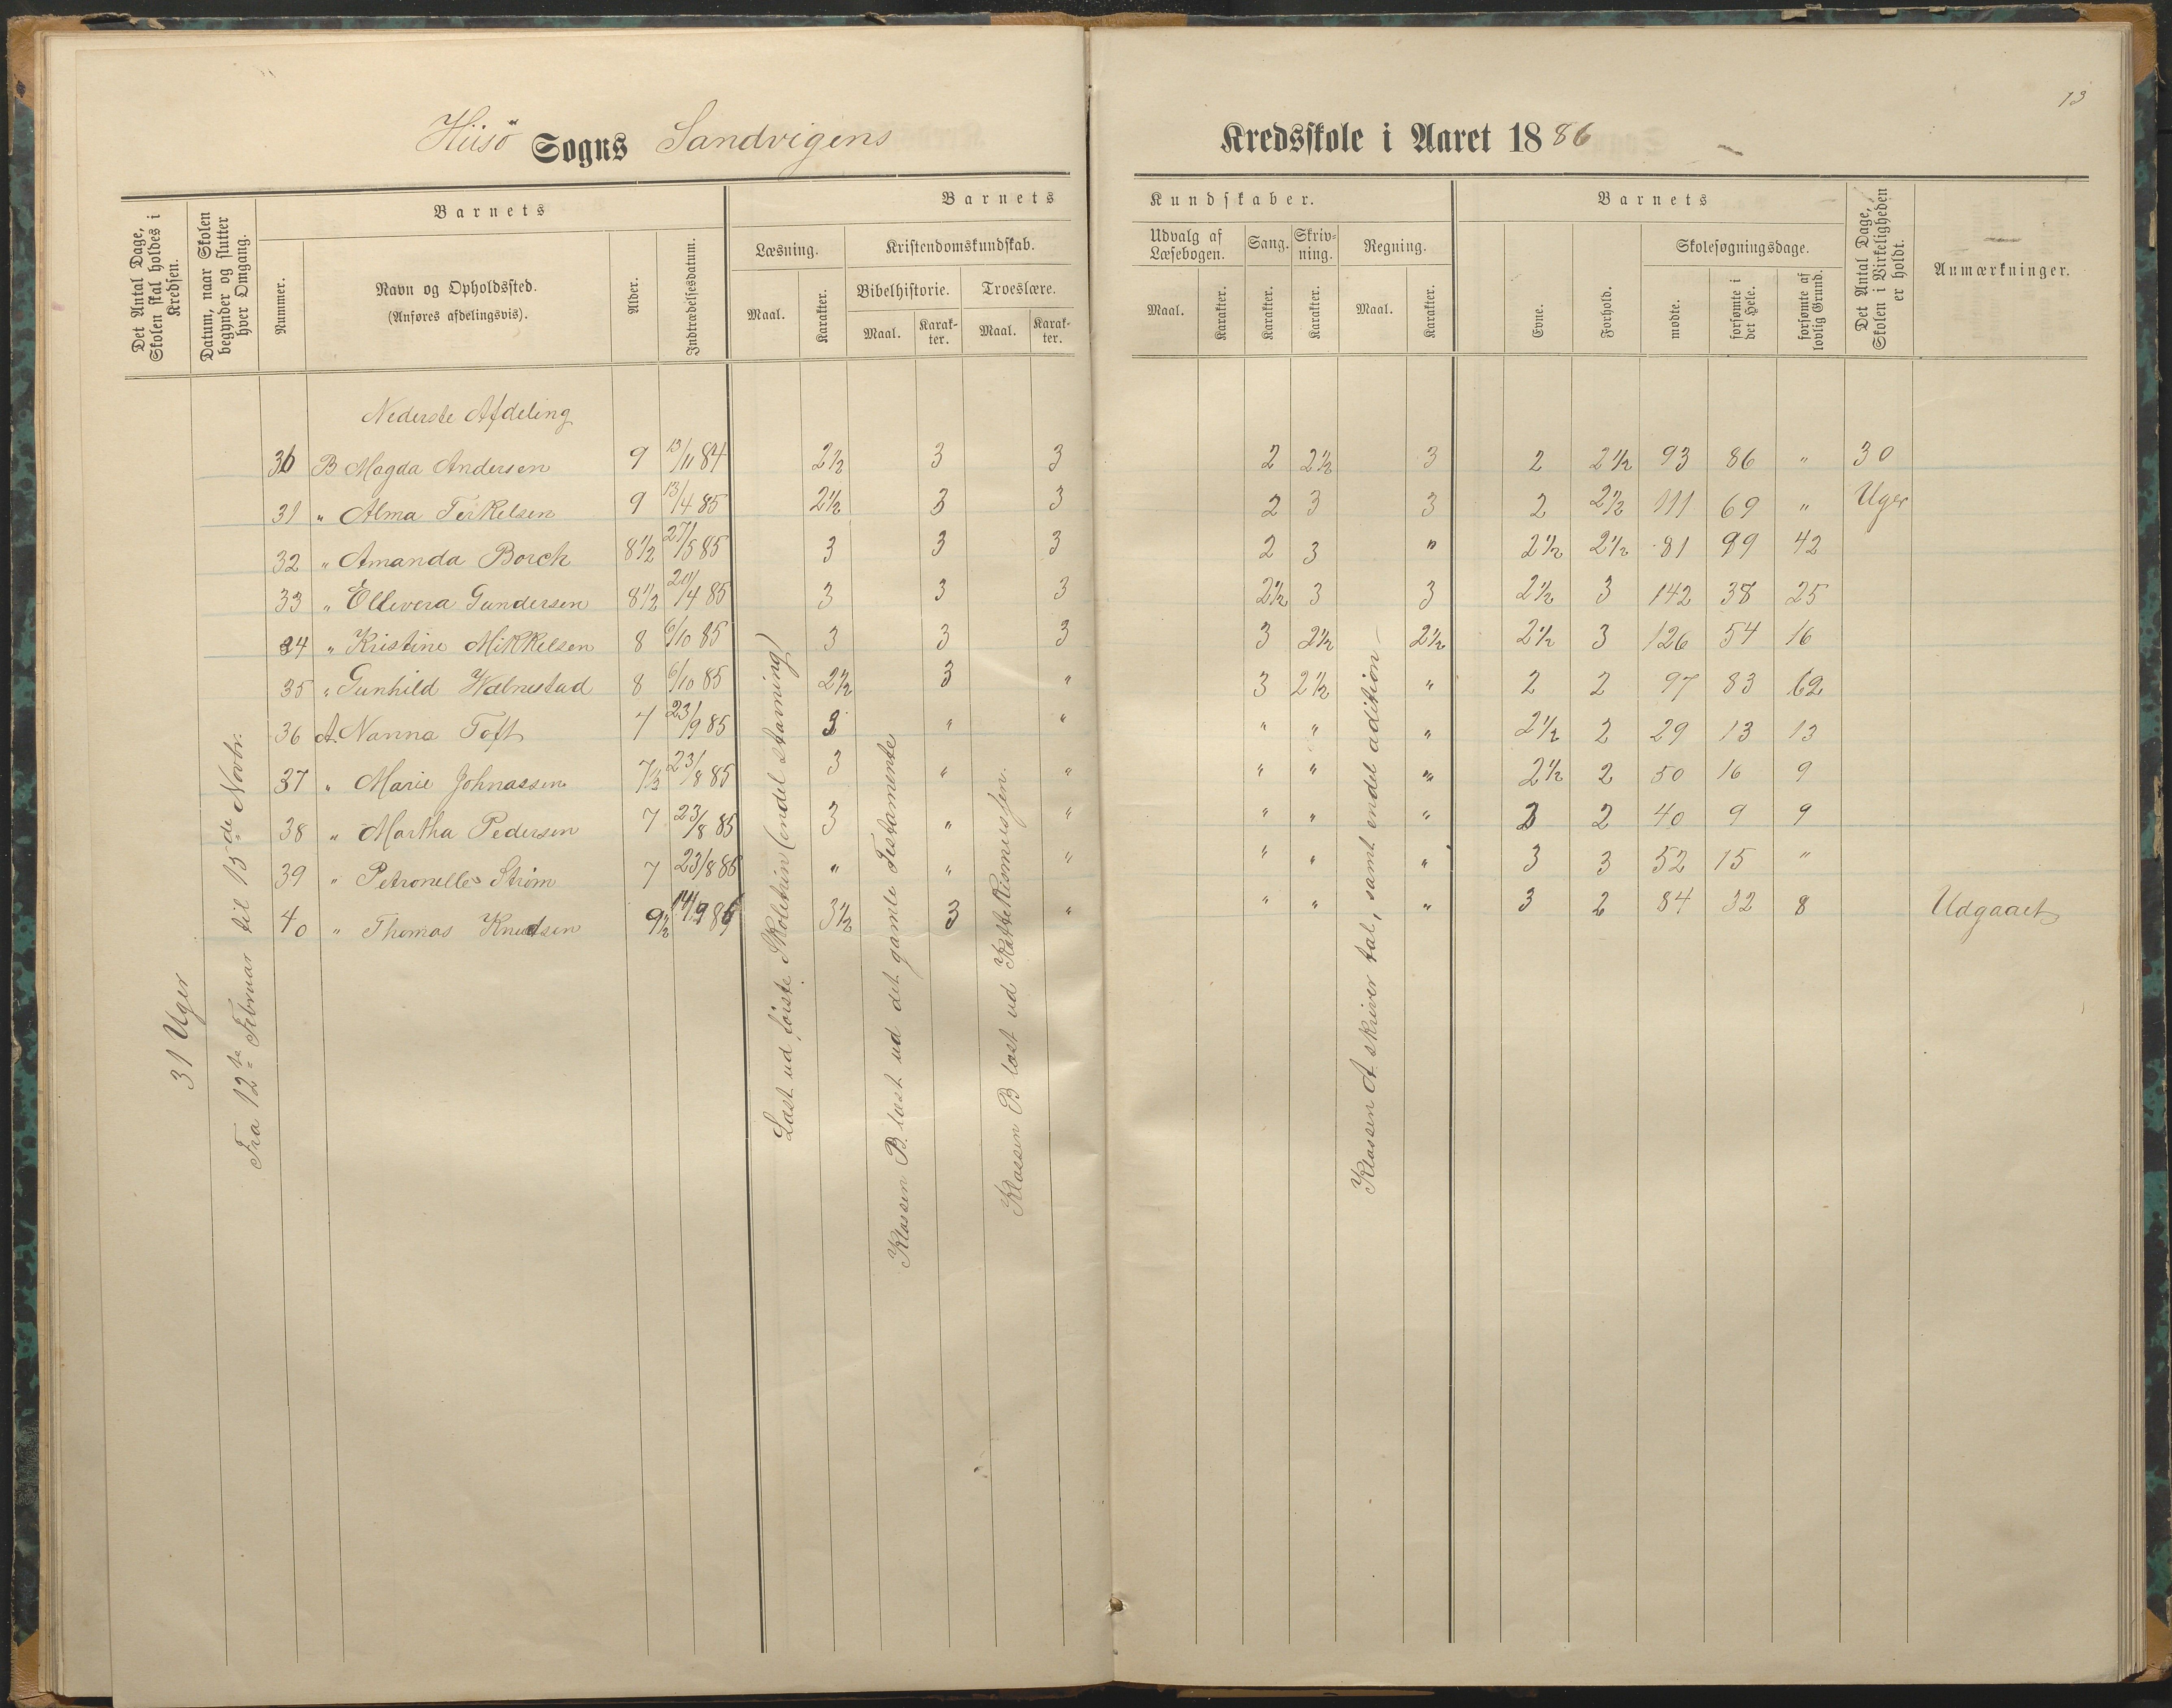 13
Hiisö Sogns Sandvigens Kredsskole i Aaret 1886
Det Antal Dage, Skolen skal holdes i Kredsen.
Datum, naar Skolen begynder og slutter hver Omgang.
Barnets
Nummer.
Navn og Opholdssted.
(Anføres afdelingsvis).
Alder.
Indtrædelsesdatum.
Barnets Kundskaber.
Læsning.
Maal. Karakter.
Kristendomskundskab.
Bibelhistorie. Troeslære.
Maal. Karakter. Maal. Karakter.
Udvalg af Læsebogen.
Maal. Karakter.
Sang.
Karakter.
Skrivning.
Karakter.
Regning.
Maal. Karakter.
Barnets
Evne. Forhold.
Skolesøgningsdage.
mødte. forsømte i det Hele. forsømte af lovlig Grund.
Det Antal Dage, Skolen i Virkeligheden er holdt.
Anmærkninger.
Nederste Afdeling
30 B Magda Andersen 9 13/11 84 2½ 3 3 2 2½ 3 2 2½ 93 86 " 30
31 " Alma Terkelsen 9 13/4 85 2½ 3 3 2 3 3 2 2½ 111 69 " Uger
32 " Amanda Borch 8½ 27/5 85 3 3 3 2 3 " 2½ 2½ 81 99 42
33 " Ellevera Gundersen 8½ 20/4 85 3 3 3 2½ 3 3 2½ 3 142 38 25
34 " Kristine Mikkelsen 8 6/10 85 3 3 3 3 2½ 2½ 2½ 3 126 54 16
35 " Gunhild 8 6/10 85 2½ 3 " 3 2½ " 2 2 97 83 62
36 A. Nanna Toft 7 23/9 85 3 " " " " " 2½ 2 29 13 13
37 " Marie Johnassen 7½ 23/8 85 3 " " " " " 2½ 2 50 16 9
38 " Martha Pedersen 7 23/8 85 3 " " " " " 3 2 40 9 9
39 " Petronelle Strøm 7 23/8 86 " " " " " " 3 3 52 15 "
40 " Thomas Knudsen 9½ 14/9 86 3½ 3 " " " " 3 2 84 32 8 Udgaaet
31 Uger
Fra 12te Februar til 15de Novbr.
Læst ud første Skoletrin (endel stavning)
Klassen B. læst ud det gamle Testamente
Klassen B læst ud Kattekismussen.
Klassen A skriver tal, samt endel adition